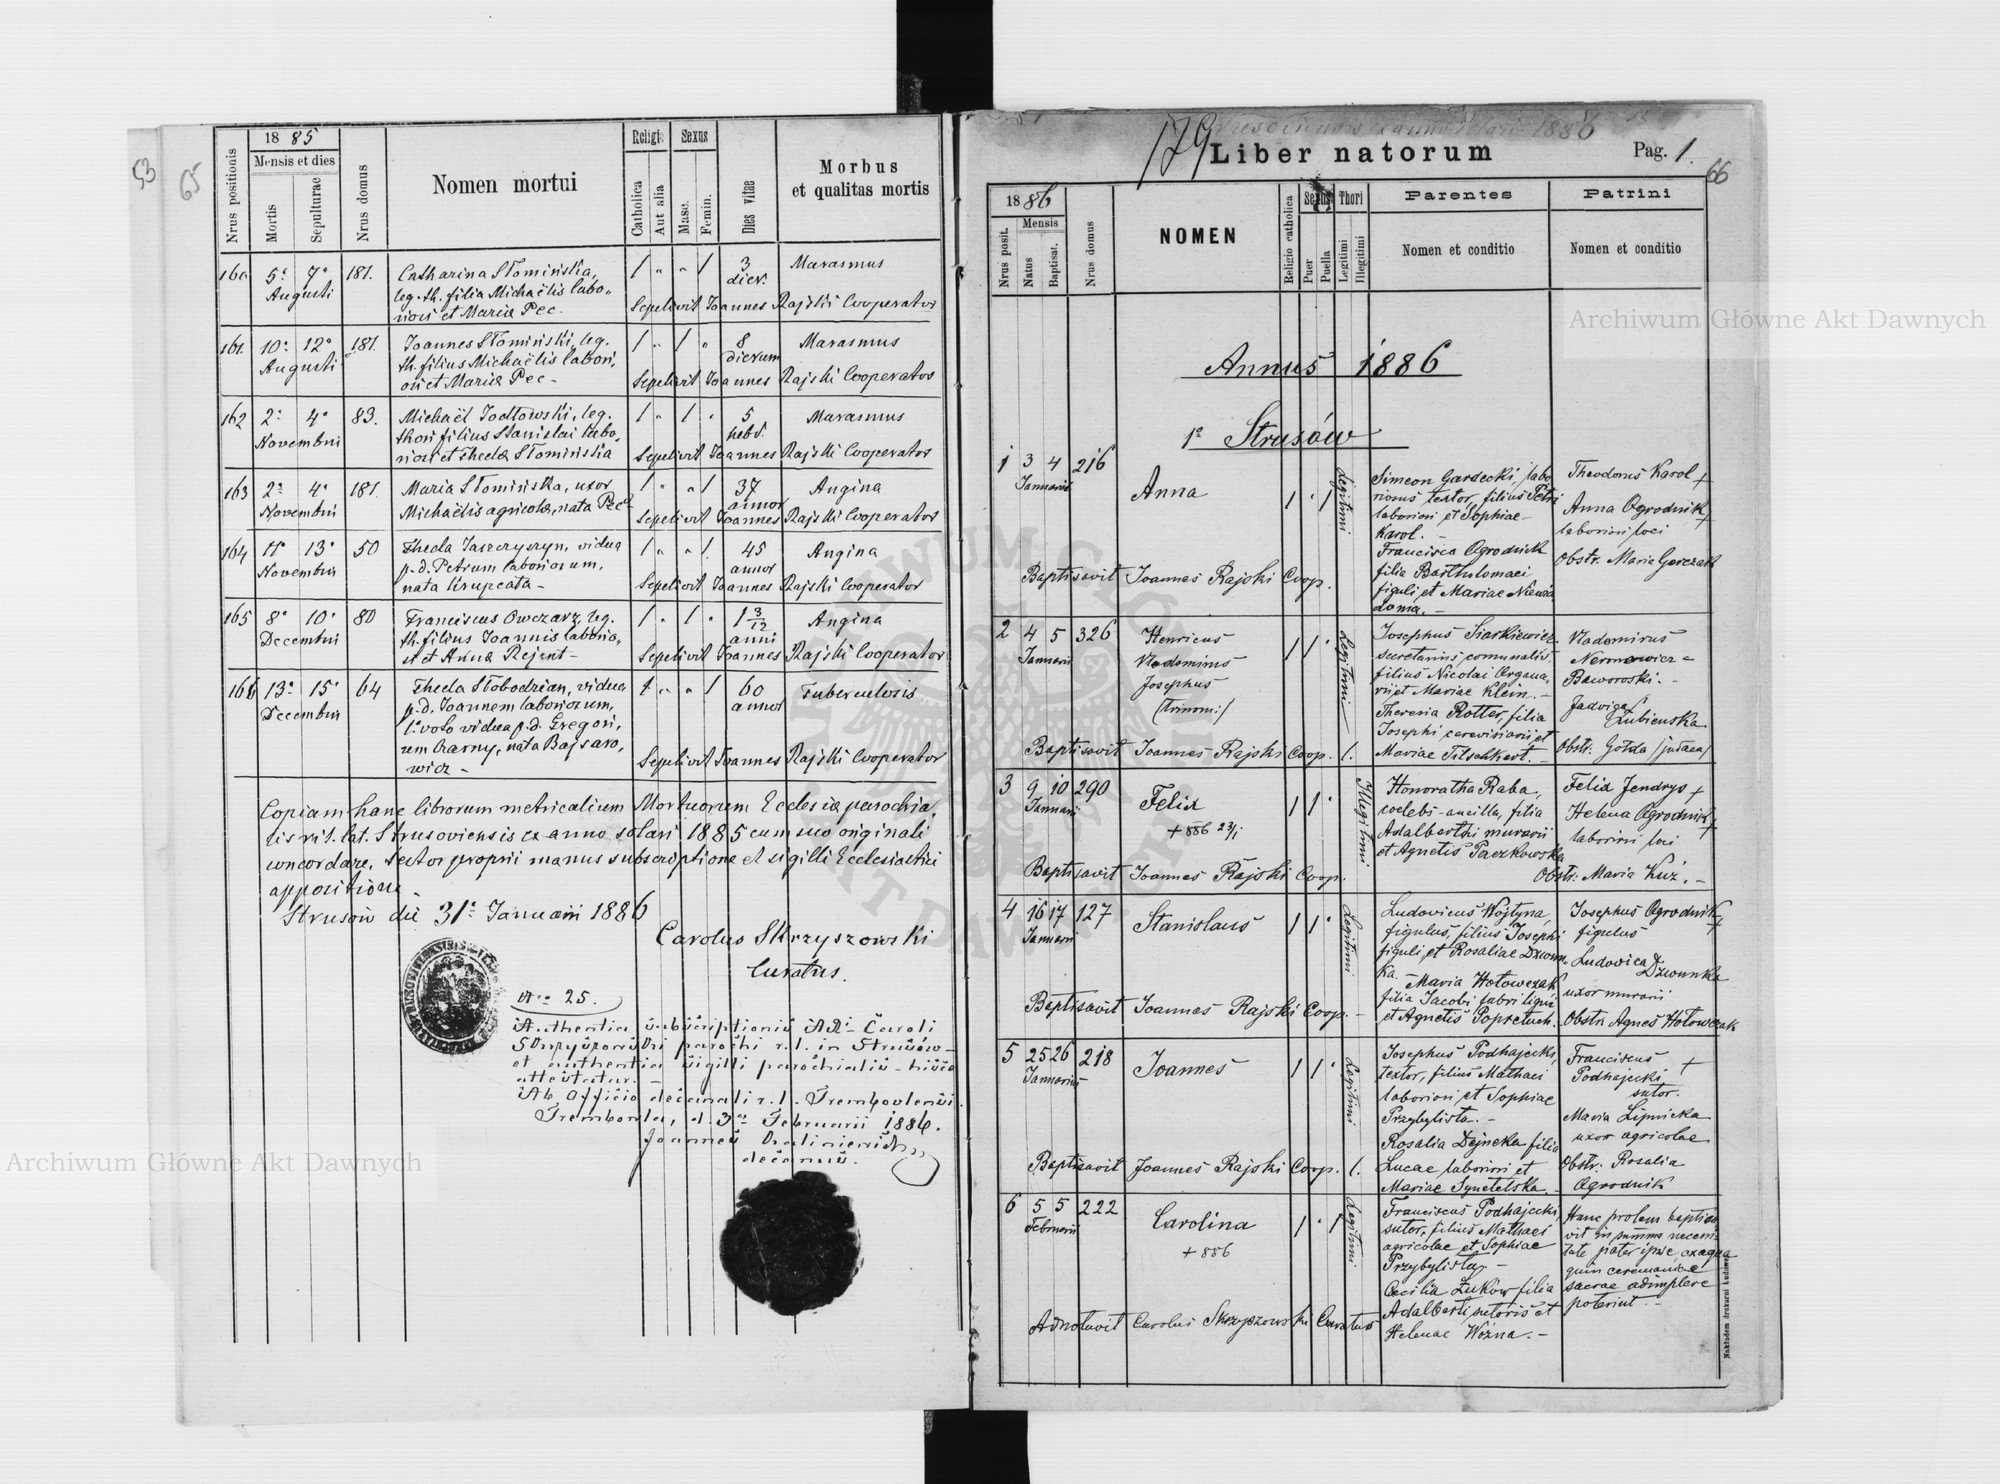 53
65
Nrus positionis
18 85
Mensis et dies
Mortis
Sepulturae
Nrus domus
Nomen mortui
Religio
Catholica
Aut alia
Sexus
Masc.
Femin.
Dies vitae
Morbus
et qualitas mortis
160 5ª 7ª 181. Catharina Słomińska, 1 " " 1 3 Marasmus
Augusti leg. th. filia Michaëlis labo- dier.
riosi et Maria Pec - Sepelivit Joannes Rajski Cooperator
161. 10ª 12ª 181. Joannes Słomiński, leg. 1 " 1 " 8 Marasmus
Augusti th. filius Michaëlis labori, dierum
osi et Maria Pec - Sepelivit Joannes Rajski Cooperator
162 2ª 4ª 83. Michaël Jodłowski, leg. 1 " 1 " 5 Marasmus
Novembris thori filius Stanislai labo, hebd.
riosi et Thecla Słomińska Sepelivit Joannes Rajski Cooperator
163 2ª 4ª 181. Maria Słomińska, uxor 1 " " 1 37 Angina
Novembris Michaëlis agricola, nata Pec annor
Sepelivit Joannes Rajski Cooperator
164 11ª 13ª 50 Thecla Jaszczyszyn, vidua 1 " " 1. 45 Angina
Novembris p. d. Petrum laboriosum, annor
nata Krupcała - Sepelivit Joannes Rajski Cooperator
165 8ª 10ª 80 Franciscus Owczarz, leg. 1 " 1 " 1 3/12 Angina
Decembris th. filius Joannis laborio, anni
si et Anna Rejent - Sepelivit Joannes Rajski Cooperator
166 13ª 15ª 64 Thecla Słobodzian, vidua 1 " " 1 60 Tuberculosis
Decembris p. d. Joannem laboriosum, annor
1º voto vidua p. d. Gregori,
um Czarny, nata Bajsaro,
wicz - Sepelivit Joannes Rajski Cooperator
Copiam hanc librorum metricalium Mortuorum Ecclesia parochia,
lis rit. lat. Strusoviensis ex anno solari 1885 cum suo originali
concordare, testor proprii manus subscriptione et sigilli Ecclesiastici
appositione.
Strusów die 31ª Januarii 1886
Carolus Skrzyszowski
Curatus.
Nro 25.
Authentia subscriptionis AR. Caroli
Skrzyszowski parochi r. l. in Strusów
et authentia sigilli parochialis hisce
attestatur. -
Ab Officio decanali r. l. Trembovlensi.
Trembowla, d. 3ª Februarii 1886.
Joannes
decanus.
179
1886
Liber natorum
Pag. 1.
66
18 86
Mensis
Nrus posit.
Natus
Baptisat.
Nrus domus
NOMEN
Religio catholica
Sexus
Puer
Puella
Thori
Legitimi
Illegitimi
Parentes
Nomen et conditio
Patrini
Nomen et conditio
Annus 1886
1º Strusów
1 3 4 216 Anna 1 " 1 Legitimi
Januarii
Simeon Gardecki, labo
riosus textor, filius Petri
laboriosi et Sophiae
Karol. -
Francisca Ogrodnik
filia Bartholomaei
figuli et Mariae Niewia
doma. -
Theodorus Karol +
Anna Ogrodnik +
laboriosi loci
Obstr. Maria Gorczak
Baptisavit Joannes Rajski Coop.
2 4 5 326 Henricus 1 1 " Legitimi
Januarii Vladomirus
Josephus
(trinom:)
Josephus Siarkiewicz
secretarius communalis,
filius Nicolai Organa,
rii et Mariae Klein. -
Theresia Rotter, filia
Josephi cerevisiarii et
Mariae Titschkert. -
Vladomirus
Nermowicz =
Baworoski. -
Jadviga
Łubieńska
Obstr. Golda /judaea/
Baptisavit Joannes Rajski Coop. l.
3 9 10 290 Felix 1 1 " Illegitimi
Januarii + 886 23/1
Honoratha Raba,
coelebs-ancilla, filia
Adalberthi murarii
et Agnetis Paczkowska
Felix Jendrys +
Helena Ogrodnik +
laboriosi loci
Obstr: Maria Kuź. -
Baptisavit Joannes Rajski Coop.
4 16 17 127 Stanislaus 1 1 " Legitimi
Januarii
Ludovicus Wojtyna,
figulus, filius Josephi
figuli et Rosaliae Dzwon-
ka. - Maria Hołowczak
filia Jacobi fabri lignii
et Agnetis Popretuch.
Josephus Ogrodnik +
figulus
Ludovica Dzwonka
uxor murarii
Obstr. Agnes Hołowczak
Baptisavit Joannes Rajski Coop. -
5 25 26 218 Joannes 1 1 " Legitimi
Januarii
Josephus Podhajecki,
textor, filius Mathaei
laboriosi et Sophiae
Przybylista. -
Rosalia Dejneka filia
Lucae laboriosi et
Mariae Synetelska. -
Franciscus +
Podhajecki
sutor.
Maria Lipnicka
uxor agricolae
Obstr. Rosalia
Ogrodnik
Baptisavit Joannes Rajski Coop. l.
6 5 5 222 Carolina 1 " 1 Legitimi
Februarii + 886
Franciscus Podhajecki,
sutor, filius Mathaei
agricolae et Sophiae
Przybylista, -
Cecilia Żuków filia
Adalberti sutoris et
Helenae Woźna. -
Hanc prolem baptisa
vit in summa necessi
tate pater ipse
quin ceremoniae
sacrae adimplere
poterint. -
Adnotavit Carolus Skrzyszowski Curatus
Nakładem drukarni Ludowej
Archiwum Główne Akt Dawnych
Archiwum Główne Akt Dawnych
ARCHIWUM GŁÓWNE AKT DAWNYCH